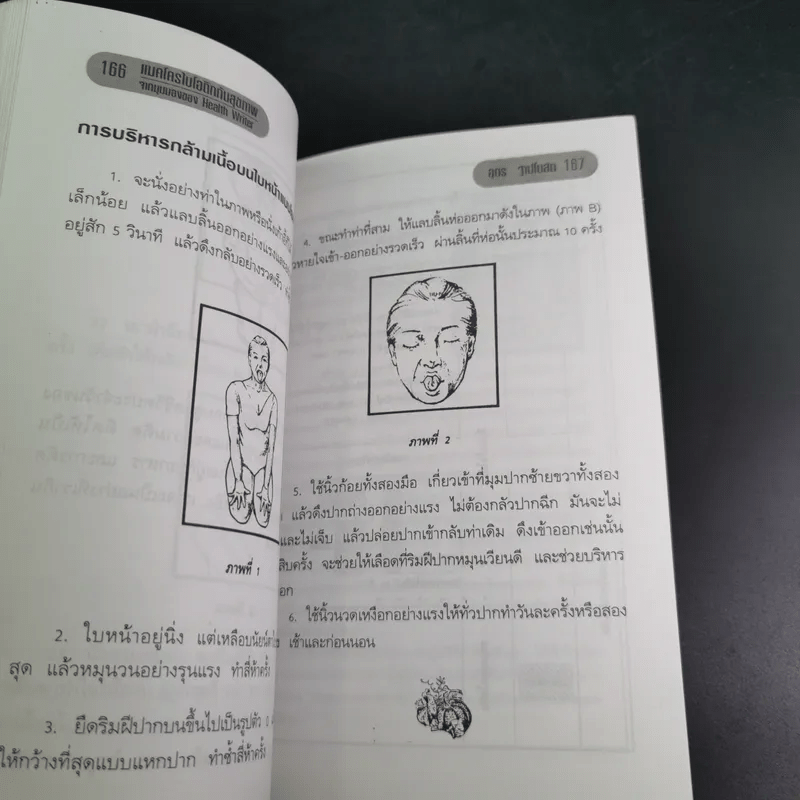 166 แมคโครไบโอติกกับสุขภาพ
จากมุมมองของ Health Writer
การบริหารกล้ามเนื้อบนใบหน้า
1. จะนั่งอย่างท่าในภาพหรือนั่ง
เล็กน้อย แล้วแลบลิ้นออกอย่างแรง
อยู่สัก 5 วินาที แล้วดึงกลับอย่างรวดเร็ว
ภาพที่ 1
2. ใบหน้าอยู่นิ่ง แต่เหลือบนัยน์ตา
สุด แล้วหมุนวนอย่างรุนแรง ทำสี่ห้าครั้ง
3. ยืดริมฝีปากบนขึ้นไปเป็นรูปตัว o
ให้กว้างที่สุดแบบแหกปาก ทำซ้ำสี่ห้าครั้ง
167
4. ขณะทำท่าที่สาม ให้แลบลิ้นห่อออกมาดังในภาพ (ภาพ B)
วหายใจเข้า-ออกอย่างรวดเร็ว ผ่านลิ้นที่ห่อนั้นประมาณ 10 ครั้ง
ภาพที่ 2
5. ใช้นิ้วก้อยทั้งสองมือ เกี่ยวเข้าที่มุมปากซ้ายขวาทั้งสอง
แล้วดึงปากถ่างออกอย่างแรง ไม่ต้องกลัวปากฉีก มันจะไม่
และไม่เจ็บ แล้วปล่อยปากเข้ากลับท่าเดิม ดึงเข้าออกเช่นนั้น
สิบครั้ง จะช่วยให้เลือดที่ริมฝีปากหมุนเวียนดี และช่วยบริหาร
อก
6. ใช้นิ้วนวดเหงือกอย่างแรงให้ทั่วปากทำวันละครั้งหรือสอง
เช้าและก่อนนอน